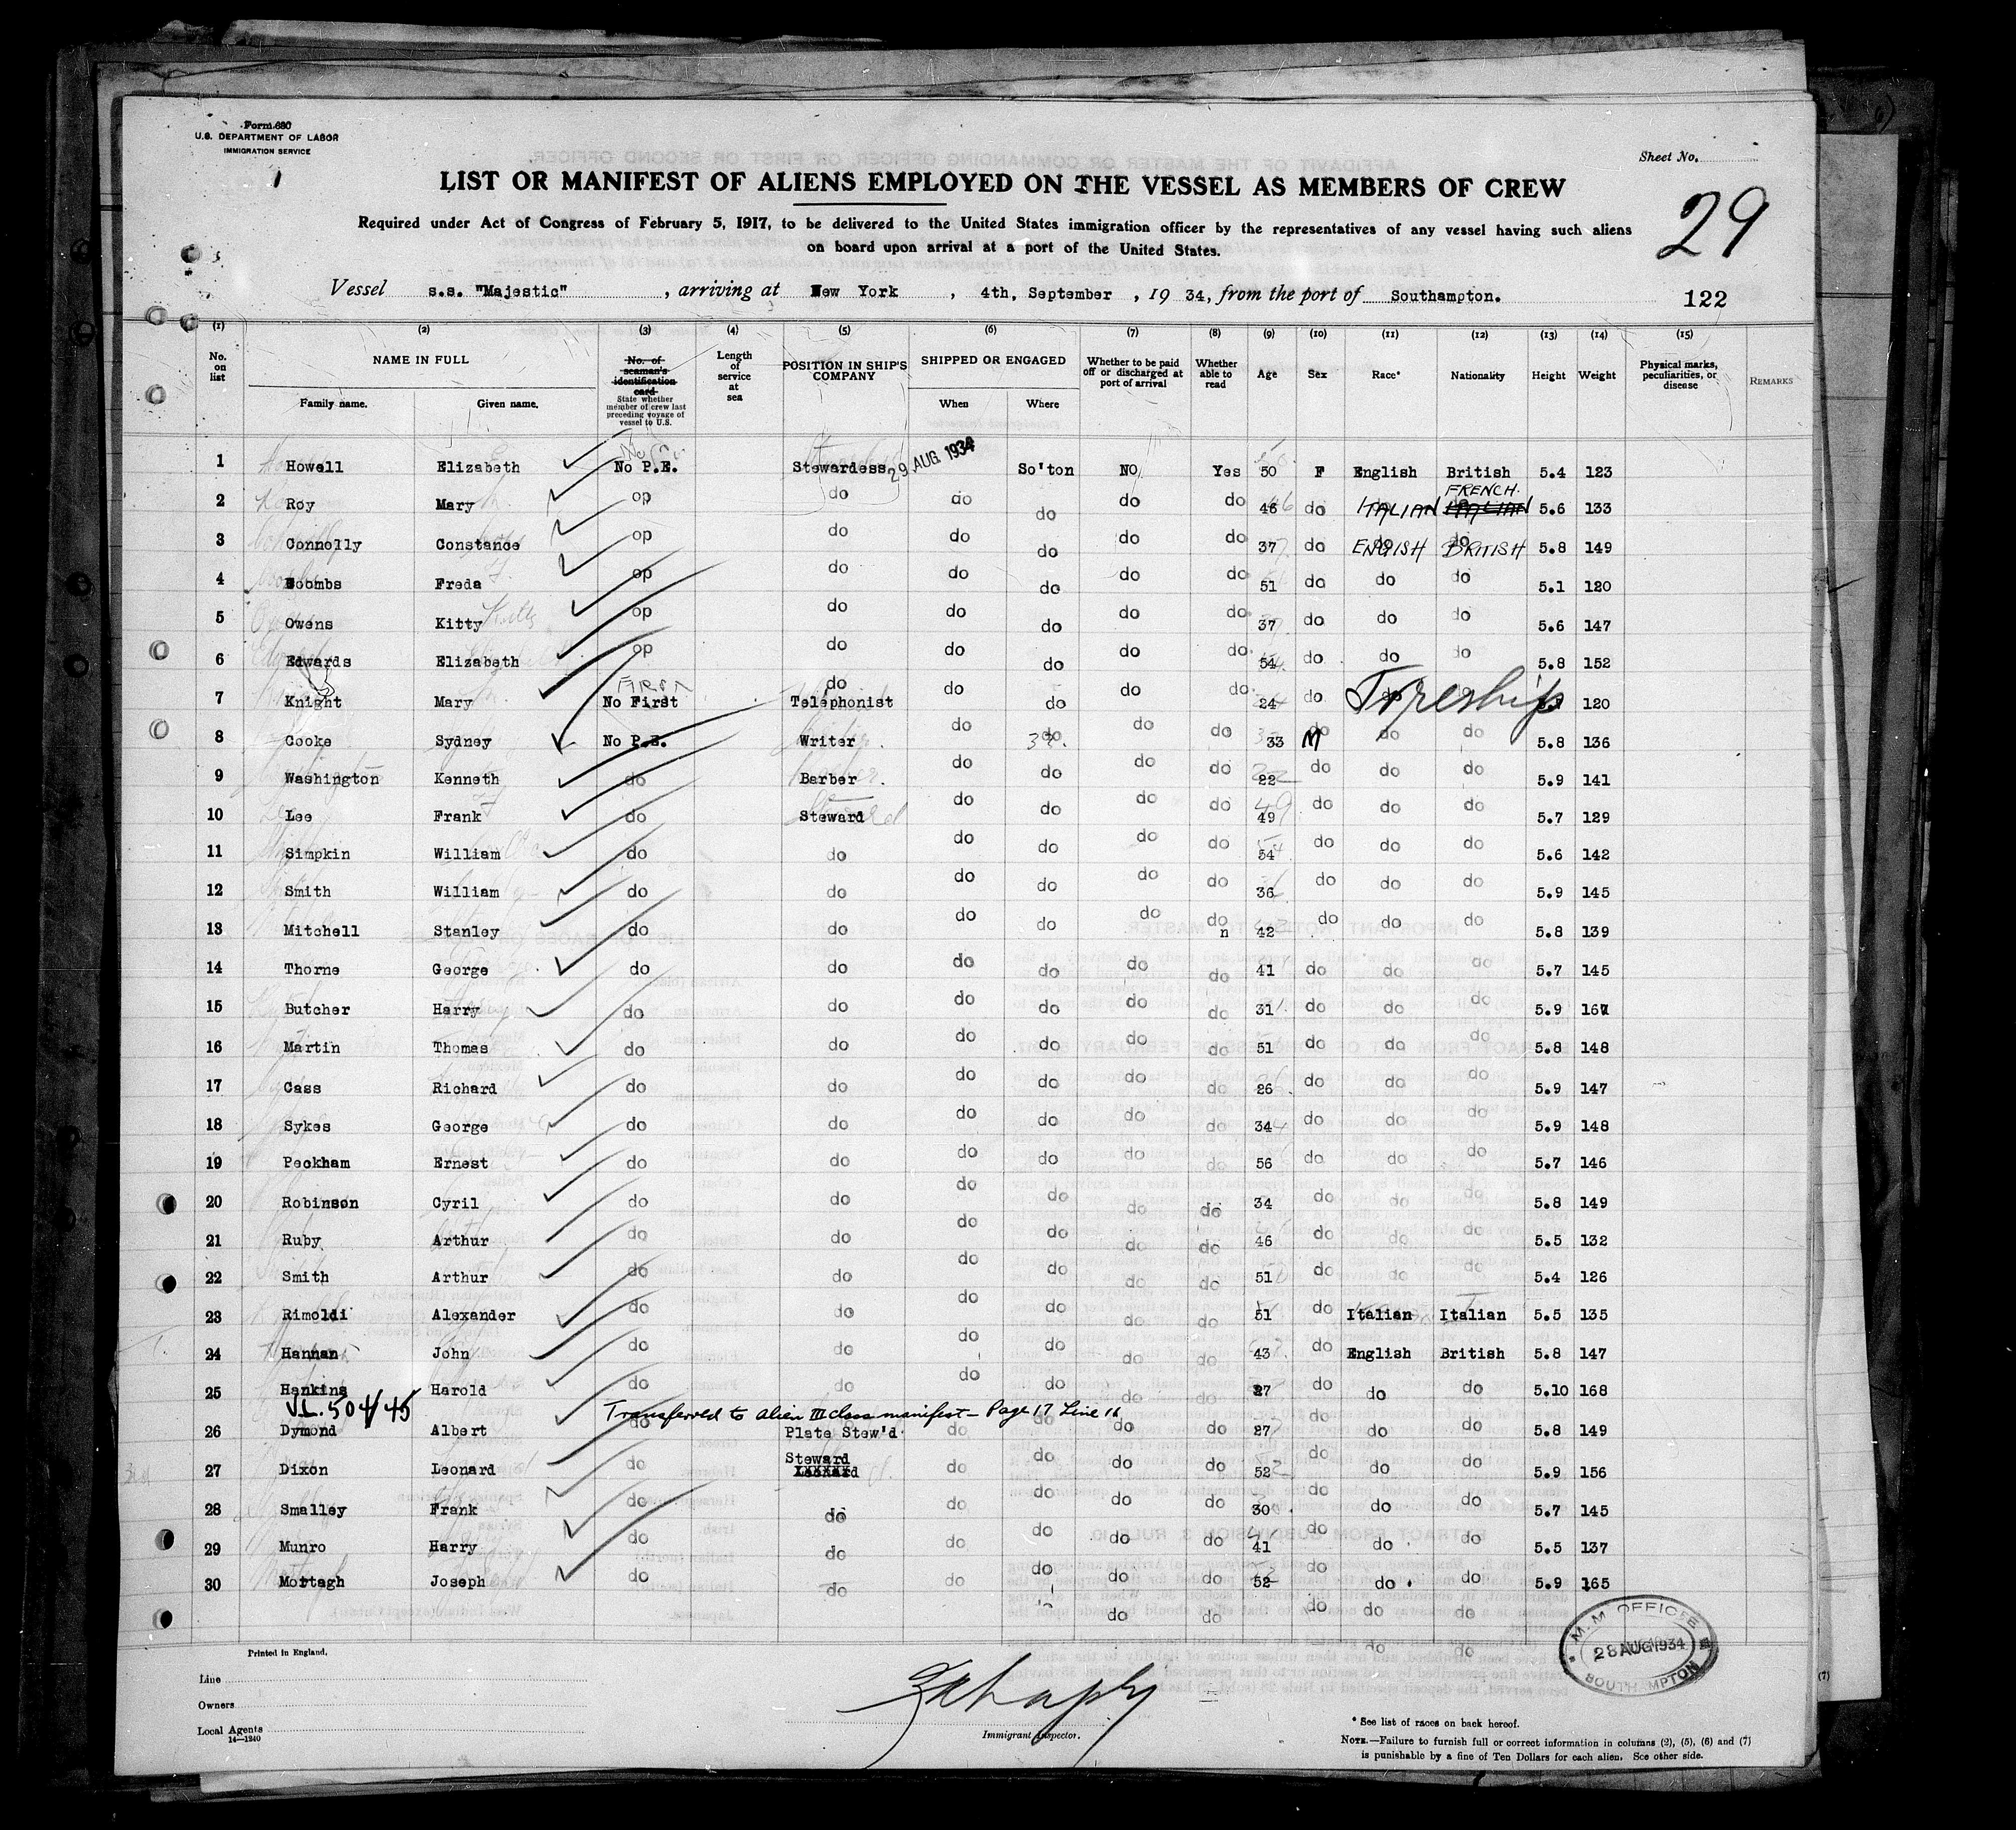 Form 680
U.S. DEPARTMENT OF LABOR
IMMIGRATION SERVICE
Sheet No.
LIST OR MANIFEST OF ALIENS EMPLOYED ON THE VESSEL AS MEMBERS OF CREW
29
Required under Act of Congress of February 5, 1917, to be delivered to the United States immigration officer by the representatives of any vessel having such aliens
on board upon arrival at a port of the United States.
Vessel s.s. "Majestic", arriving at New York, 4th, September, 19 34, from the port of Southampton.
122
(1) (2) (3) (4) (5) (6) (7) (8) (9) (10) (11) (12) (13) (14) (15)
No. on list NAME IN FULL Family name. Given name. No. of seaman's identification card State whether member of crew last preceding voyage of vessel to U.S. Length of service at sea POSITION IN SHIP'S COMPANY SHIPPED OR ENGAGED When Where Whether to be paid off or discharged at port of arrival Whether able to read Age Sex Race* Nationality Height Weight Physical marks, peculiarities, or disease REMARKS
1 Howell Elizabeth No P.E. Stewardess 29 AUG 1934 So'ton NO Yes 50 F English British 5.4 123
2 Roy Mary op do do do do do 46 do ITALIAN FRENCH. 5.6 133
3 Connolly Constance op do do do do do 37 do ENGISH BRITISH 5.8 149
4 Coombs Freda op do do do do do 51 do do do 5.1 120
5 Owens Kitty op do do do do do 37 do do do 5.6 147
6 Edwards Elizabeth op do do do do do 54 do do do 5.8 152
7 Knight Mary No First do Telephonist do do do do 24 do do do Toreship 120
8 Cooke Sydney No P.E. Writer do do do do 33 M do do 5.8 136
9 Washington Kenneth do Barber do do do do 22 do do do 5.9 141
10 Lee Frank do Steward do do do do 49 do do do 5.7 129
11 Simpkin William do do do do do do 54 do do do 5.6 142
12 Smith William do do do do do do 36 do do do 5.9 145
13 Mitchell Stanley do do do do do do n 42 do do do 5.8 139
14 Thorne George do do do do do do 41 do do do 5.7 145
15 Butcher Harry do do do do do do 31 do do do 5.9 167
16 Martin Thomas do do do do do do 51 do do do 5.8 148
17 Cass Richard do do do do do do 26 do do do 5.9 147
18 Sykes George do do do do do do 34 do do do 5.9 148
19 Peckham Ernest do do do do do do 56 do do do 5.7 146
20 Robinson Cyril do do do do do do 34 do do do 5.8 149
21 Ruby Arthur do do do do do do 46 do do do 5.5 132
22 Smith Arthur do do do do do do 51 do do do 5.4 126
23 Rimoldi Alexander do do do do do do 51 do Italian Italian 5.5 135
24 Hannan John do do do do do do 43 do English British 5.8 147
25 Hankins Harold do do do do do do 27 do do do 5.10 168
V.L. 504/45 Transferred to alien III class manifest - Page 17 Line 16
26 Dymond Albert do Plate Stew'd do do do do 27 do do do 5.8 149
27 Dixon Leonard do Steward do do do do 52 do do do 5.9 156
28 Smalley Frank do do do do do do 30 do do do 5.7 145
29 Munro Harry do do do do do do 41 do do do 5.5 137
30 Mortagh Joseph do do do do do do 52 do do do 5.9 165
do do do do do
do do
Printed in England.
M.M. OFFICE
28 AUG 1934
SOUTHAMPTON
Line
Owners
Local Agents
14—1240
Immigrant Inspector.
* See list of races on back hereof.
NOTE.—Failure to furnish full or correct information in columns (2), (5), (6) and (7)
is punishable by a fine of Ten Dollars for each alien. See other side.